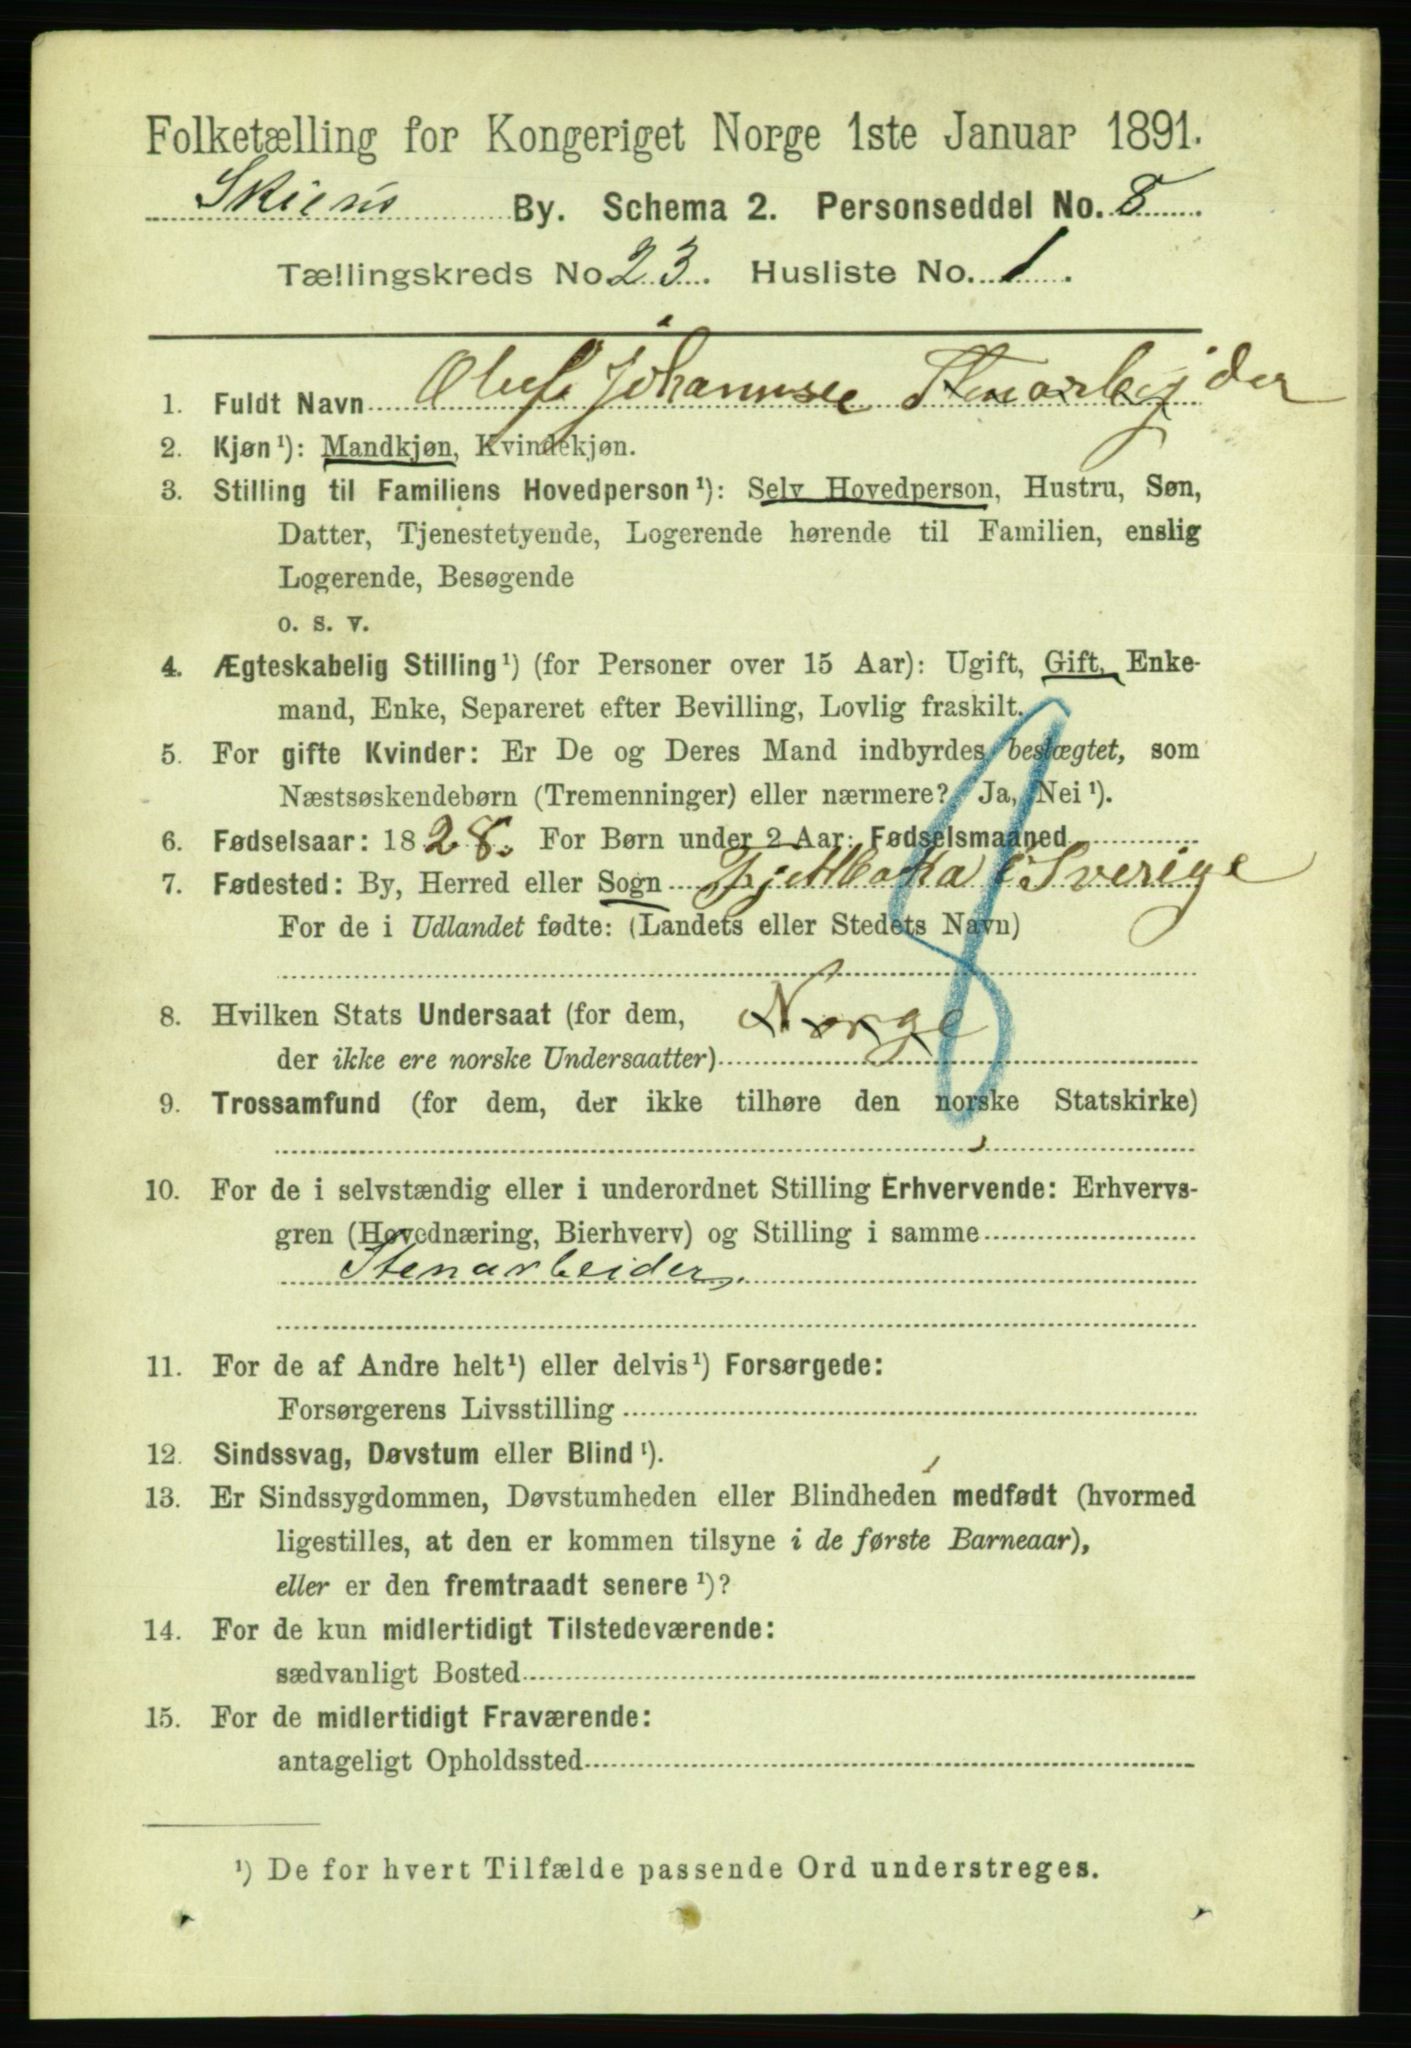 Folketælling for Kongeriget Norge 1ste Januar 1891.
Skiens By. Schema 2. Personseddel No. 8
Tællingskreds No 23. Husliste No. 1.
1. Fuldt Navn Oluf Johannsen Stenarbejder
2. Kjøn¹): Mandkjøn, Kvindekjøn.
3. Stilling til Familiens Hovedperson¹): Selv Hovedperson, Hustru, Søn,
Datter, Tjenestetyende, Logerende hørende til Familien, enslig
Logerende, Besøgende
o. s. v.
4. Ægteskabelig Stilling¹) (for Personer over 15 Aar): Ugift, Gift, Enke-
mand, Enke, Separeret efter Bevilling, Lovlig fraskilt.
5. For gifte Kvinder: Er De og Deres Mand indbyrdes beslægtet, som
Næstsøskendebørn (Tremenninger) eller nærmere? Ja, Nei¹).
6. Fødselsaar: 1828. For Børn under 2 Aar: Fødselsmaaned
7. Fødested: By, Herred eller Sogn Fjellbaka i Sverige
For de i Udlandet fødte: (Landets eller Stedets Navn)
8. Hvilken Stats Undersaat (for dem, Norge
der ikke ere norske Undersaatter)
9. Trossamfund (for dem, der ikke tilhøre den norske Statskirke)
10. For de i selvstændig eller i underordnet Stilling Erhvervende: Erhvervs-
gren (Hovednæring, Bierhverv) og Stilling i samme
Stenarbeider.
11. For de af Andre helt¹) eller delvis¹) Forsørgede:
Forsørgerens Livsstilling
12. Sindssvag, Døvstum eller Blind¹).
13. Er Sindssygdommen, Døvstumheden eller Blindheden medfødt (hvormed
ligestilles, at den er kommen tilsyne i de første Barneaar),
eller er den fremtraadt senere¹)?
14. For de kun midlertidigt Tilstedeværende:
sædvanligt Bosted
15. For de midlertidigt Fraværende:
antageligt Opholdssted
¹) De for hvert Tilfælde passende Ord understreges.